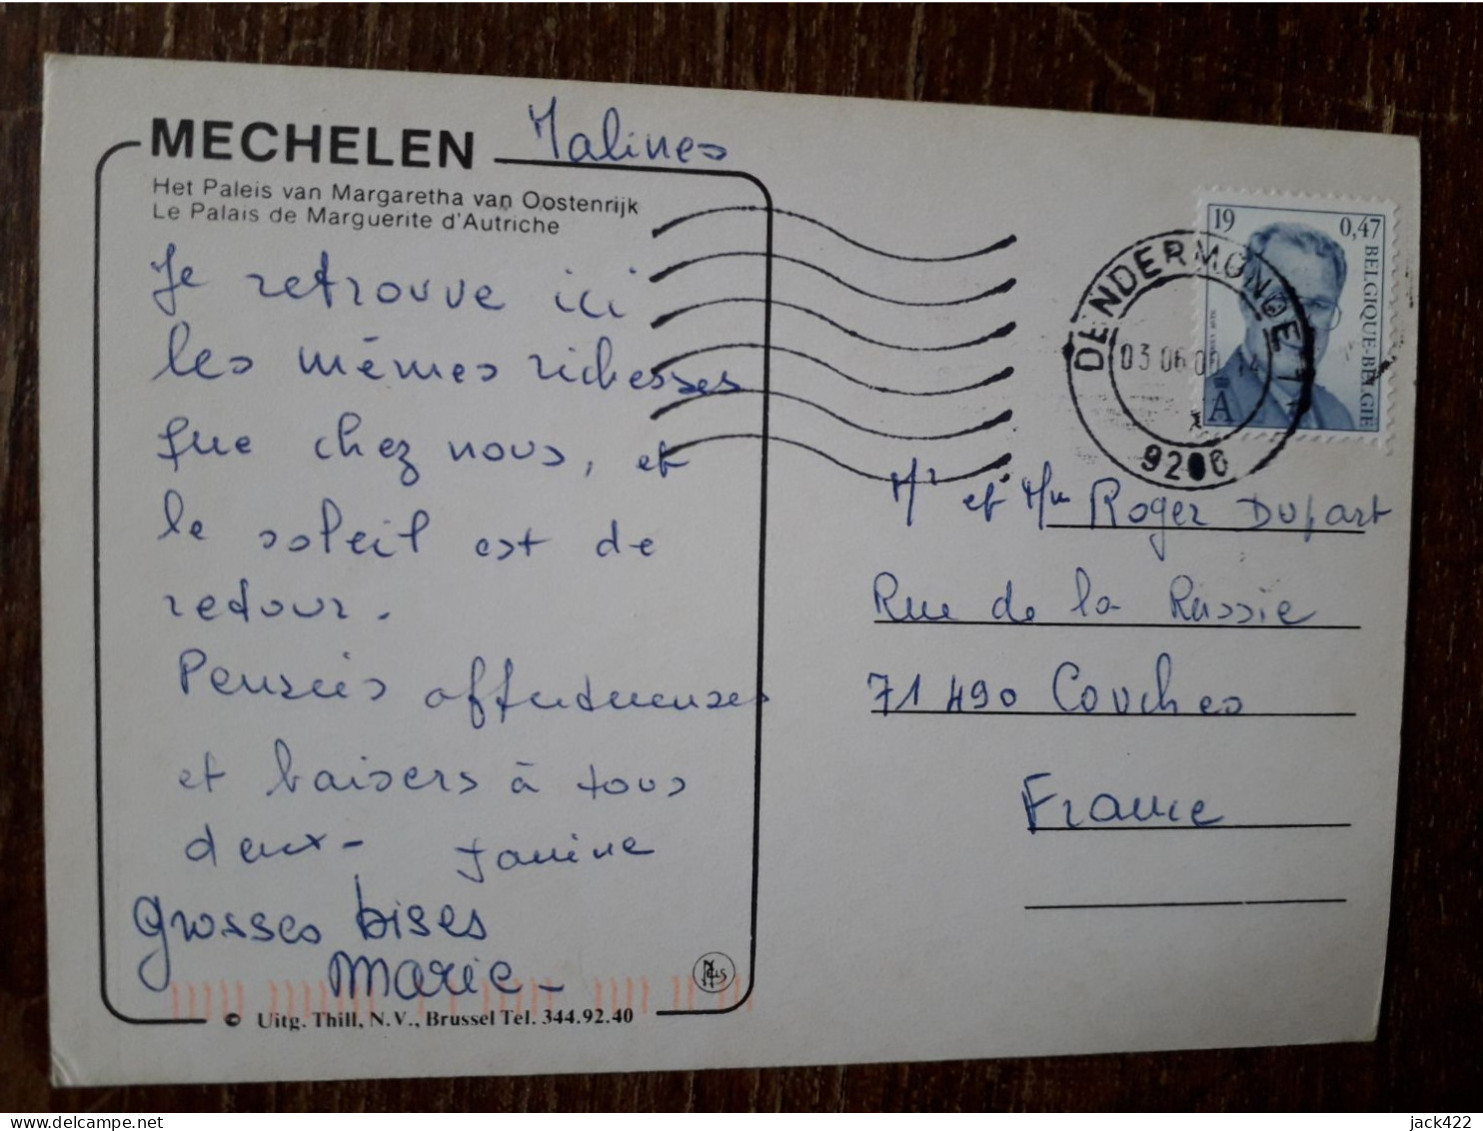 MECHELEN Malines
Het Paleis van Margaretha van Oostenrijk
Le Palais de Marguerite d'Autriche
Je retrouve ici
les mêmes richesses
que chez nous, et
le soleil est de
retour.
Pensées affectueuses
et baisers à tous
deux - Janine
grosses bises
Marie -
© Uitg. Thill, N.V., Brussel Tel. 344.92.40
19 0,47
BELGIQUE-BELGIË
A
DENDERMONDE 1
03 06 00 14
9200
Mr et Mme Roger Dufart
Rue de la Russie
71490 Couches
France
jack422